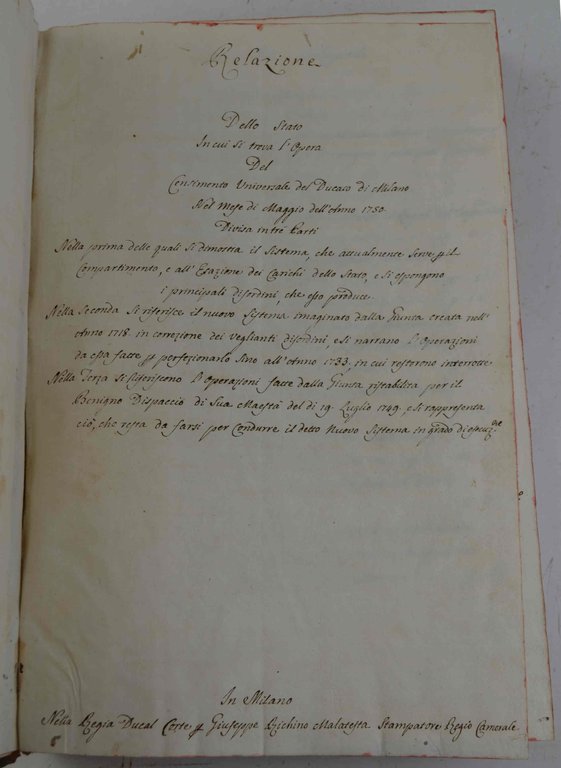 Relazione
Dello Stato
In cui si trova l'Opera
Del
Censimento Universale del Ducato di Milano
Nel Mese di Maggio dell'Anno 1750
Divisa in tré Parti
Nella prima delle quali si dimostra il Sistema, che attualmente serve p il
Compartimento, e all'Esazione dei Carichi dello Stato, e si espongono
i principali disordini, che esso produce
Nella Seconda si riferisce il nuovo Sistema imaginato dalla Giunta creata nell'
Anno 1718. in correzione dei veglianti disordini, e si narrano l'Operazioni
da essa fatte p perfezionarlo sino all'Anno 1733. in cui restorono interrotte
Nella Terza si riferiscono l'Operazioni fatte dalla Giunta ristabilita per il
Benigno Dispaccio di Sua Maestà del dì 19. Luglio 1749. e si rappresenta
ciò, che resta da farsi per condurre il detto Nuovo Sistema in grado di esecuz.ne
In Milano
Nella Regia Ducal Corte p Giuseppe Richino Malatesta Stampatore Regio Camerale